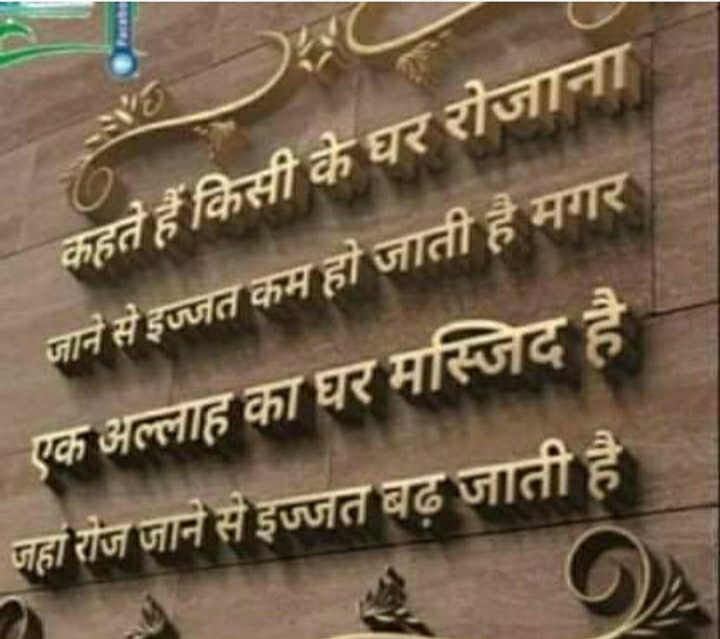 कहते हैं किसी के घर रोजाना
जाने से इज्जत कम हो जाती है मगर
एक अल्लाह का घर मस्जिद है
जहां रोज जाने से इज्जत बढ़ जाती है